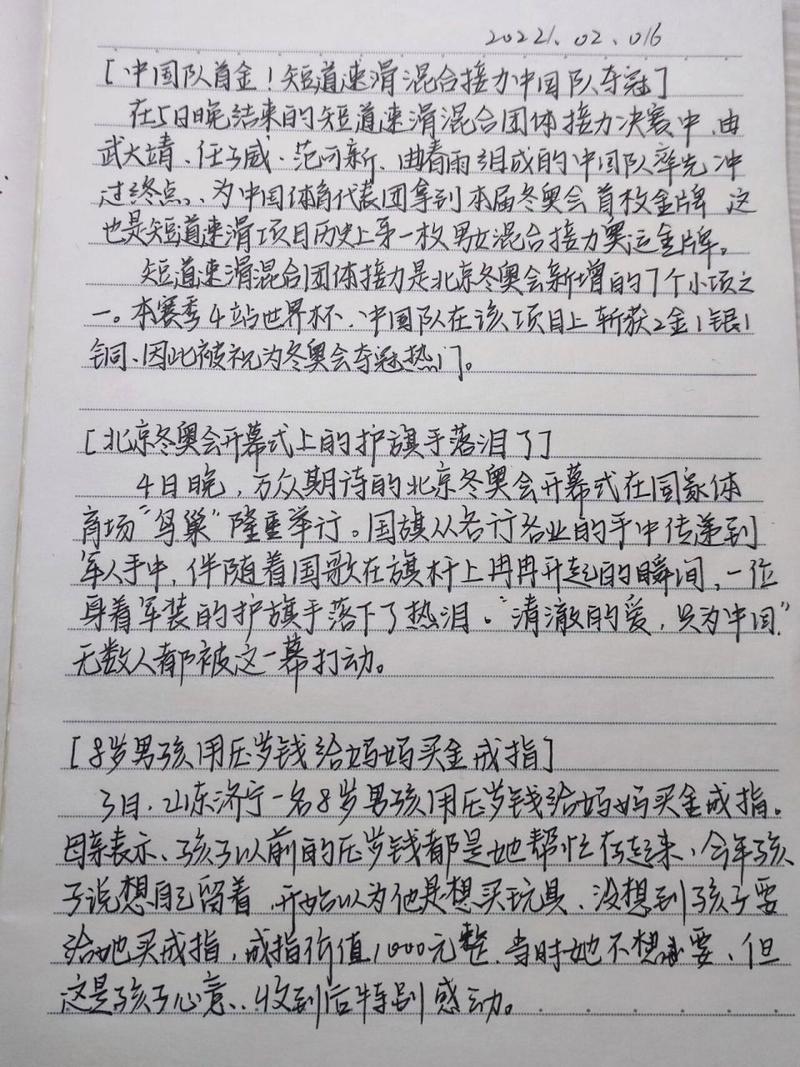 2022.02.06
[中国队首金！短道速滑混合接力中国队夺冠]
在5日晚结束的短道速滑混合团体接力决赛中，由
武大靖、任子威、范可新、曲春雨组成的中国队率先冲
过终点，为中国体育代表团拿到本届冬奥会首枚金牌，这
也是短道速滑项目历史上第一枚男女混合接力奥运金牌。
短道速滑混合团体接力是北京冬奥会新增的7个小项之
一。本赛季4站世界杯，中国队在该项目上斩获2金1银1
铜、因此被视为冬奥会夺冠热门。
[北京冬奥会开幕式上的护旗手落泪了]
4日晚，万众期待的北京冬奥会开幕式在国家体
育场“鸟巢”隆重举行。国旗从各行各业的手中传递到
军人手中，伴随着国歌在旗杆上冉冉升起的瞬间，一位
身着军装的护旗手落下了热泪。“清澈的爱，只为中国”
无数人都被这一幕打动。
[8岁男孩用压岁钱给妈妈买金戒指]
3日，山东济宁一名8岁男孩用压岁钱给妈妈买金戒指。
母亲表示、孩子以前的压岁钱都是她帮忙存起来、今年孩
子说想自己留着，开始以为他是想买玩具、没想到孩子要
给她买戒指，戒指价值1000元整，当时她不想要，但
这是孩子心意、收到后特别感动。